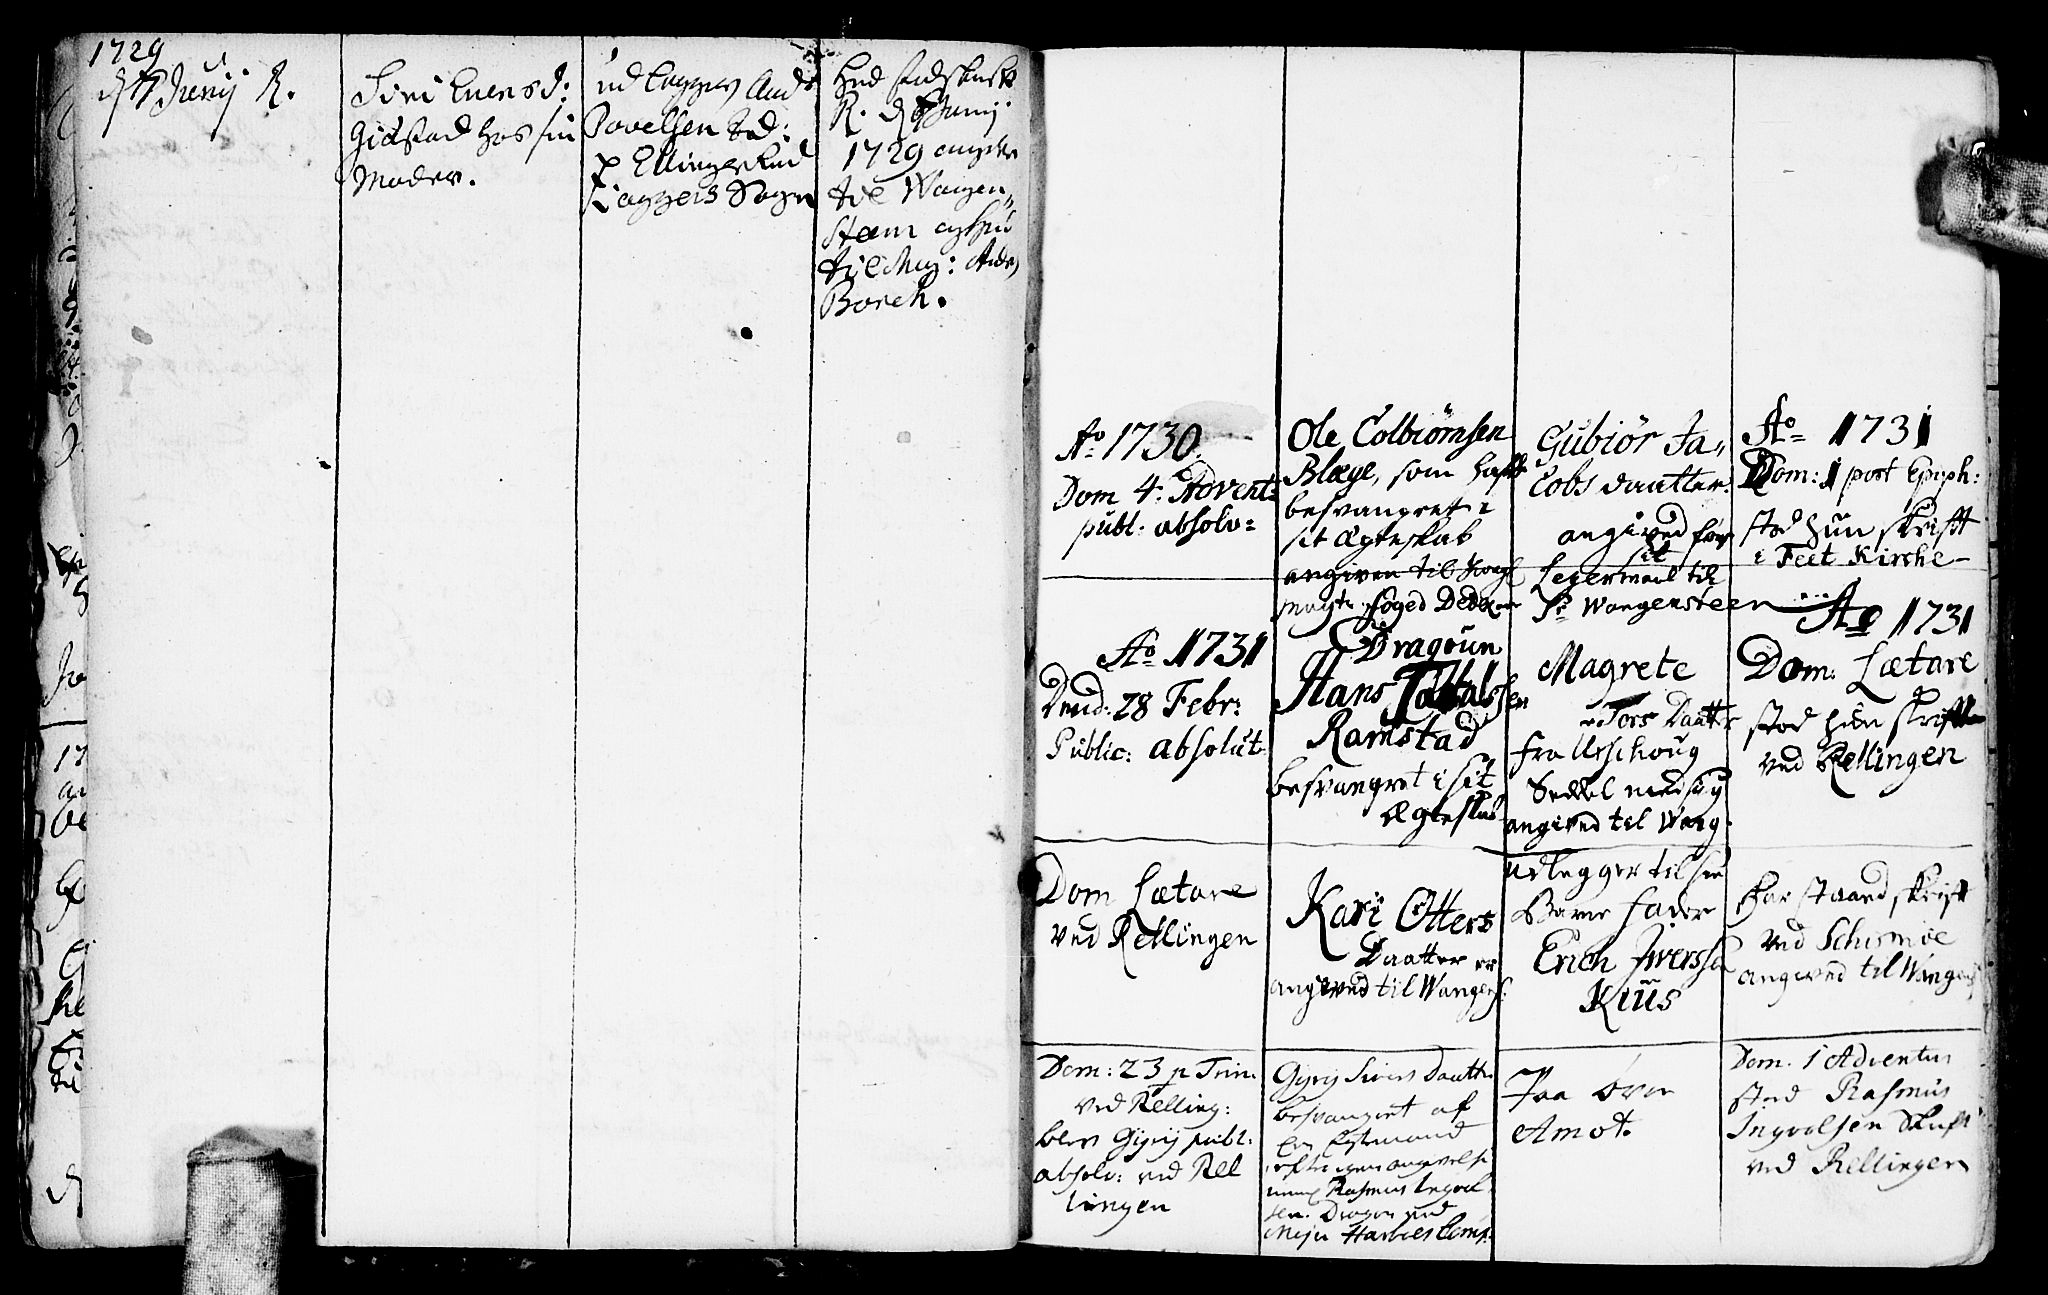 1729
d. Junij R.
Siri Evensd:
Gidstad hos sin
Moder.
udlegger And:
Povelsen
p Ellingerud
Sogn
R. d. Junij
1729 angiven
til Wangen„
steen og hun
til
Borch.
Ao 1730.
Dom 4. Advent:
publ. absolv=
Ole Colbiørnsen
Blæge, som hafde
besvangret i
sit Ægteskab
angiven til Kongl
Mayts foged Dede
Gubiør Ja„
cobs daatter.
angived for
sit
Leiermaal til
Sr Wangensteen
Ao 1731
Dom: 1 post Epiph:
stod hun skrifft
i Feet Kirche
Ao 1731
Dend: 28 Febr:
Public: absolut.
Dragoun
Hans
Ramstad
besvangret i sit
Ægteskab
Magrete
Tors Daatter
fra Urschoug
angived til Wang.
Ao 1731
Dom: Lætare
stod hun skrifte
ved Rellingen
Dom Lætare
ved Rellingen
Kari Otters
Daatter er
angived til Wangens:
udlegger til sin
Barne fader
Erich Iversen
Kiüs
har staaed skrift
ved Schismoe
angived til Wangens
Dom: 23 p Trin.
ved Relling:
blev Gyrij publ:
absolv: ved Rel
lingen
Gyrij Sivers Daatter
besvangret af
en
efter egen angivelse
Rasmus Ingvol
sen. Dragon ved
Major Harboes Comp:
Paa øvre
Amot.
Dom. 1 Adventus
stod Rasmus
Ingvolsen Skrift
ved Rellingen